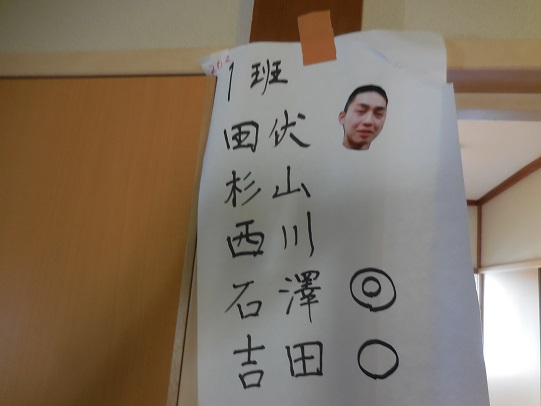 202
1班
田伏
杉山
西川
石澤 ◎
吉田 ○